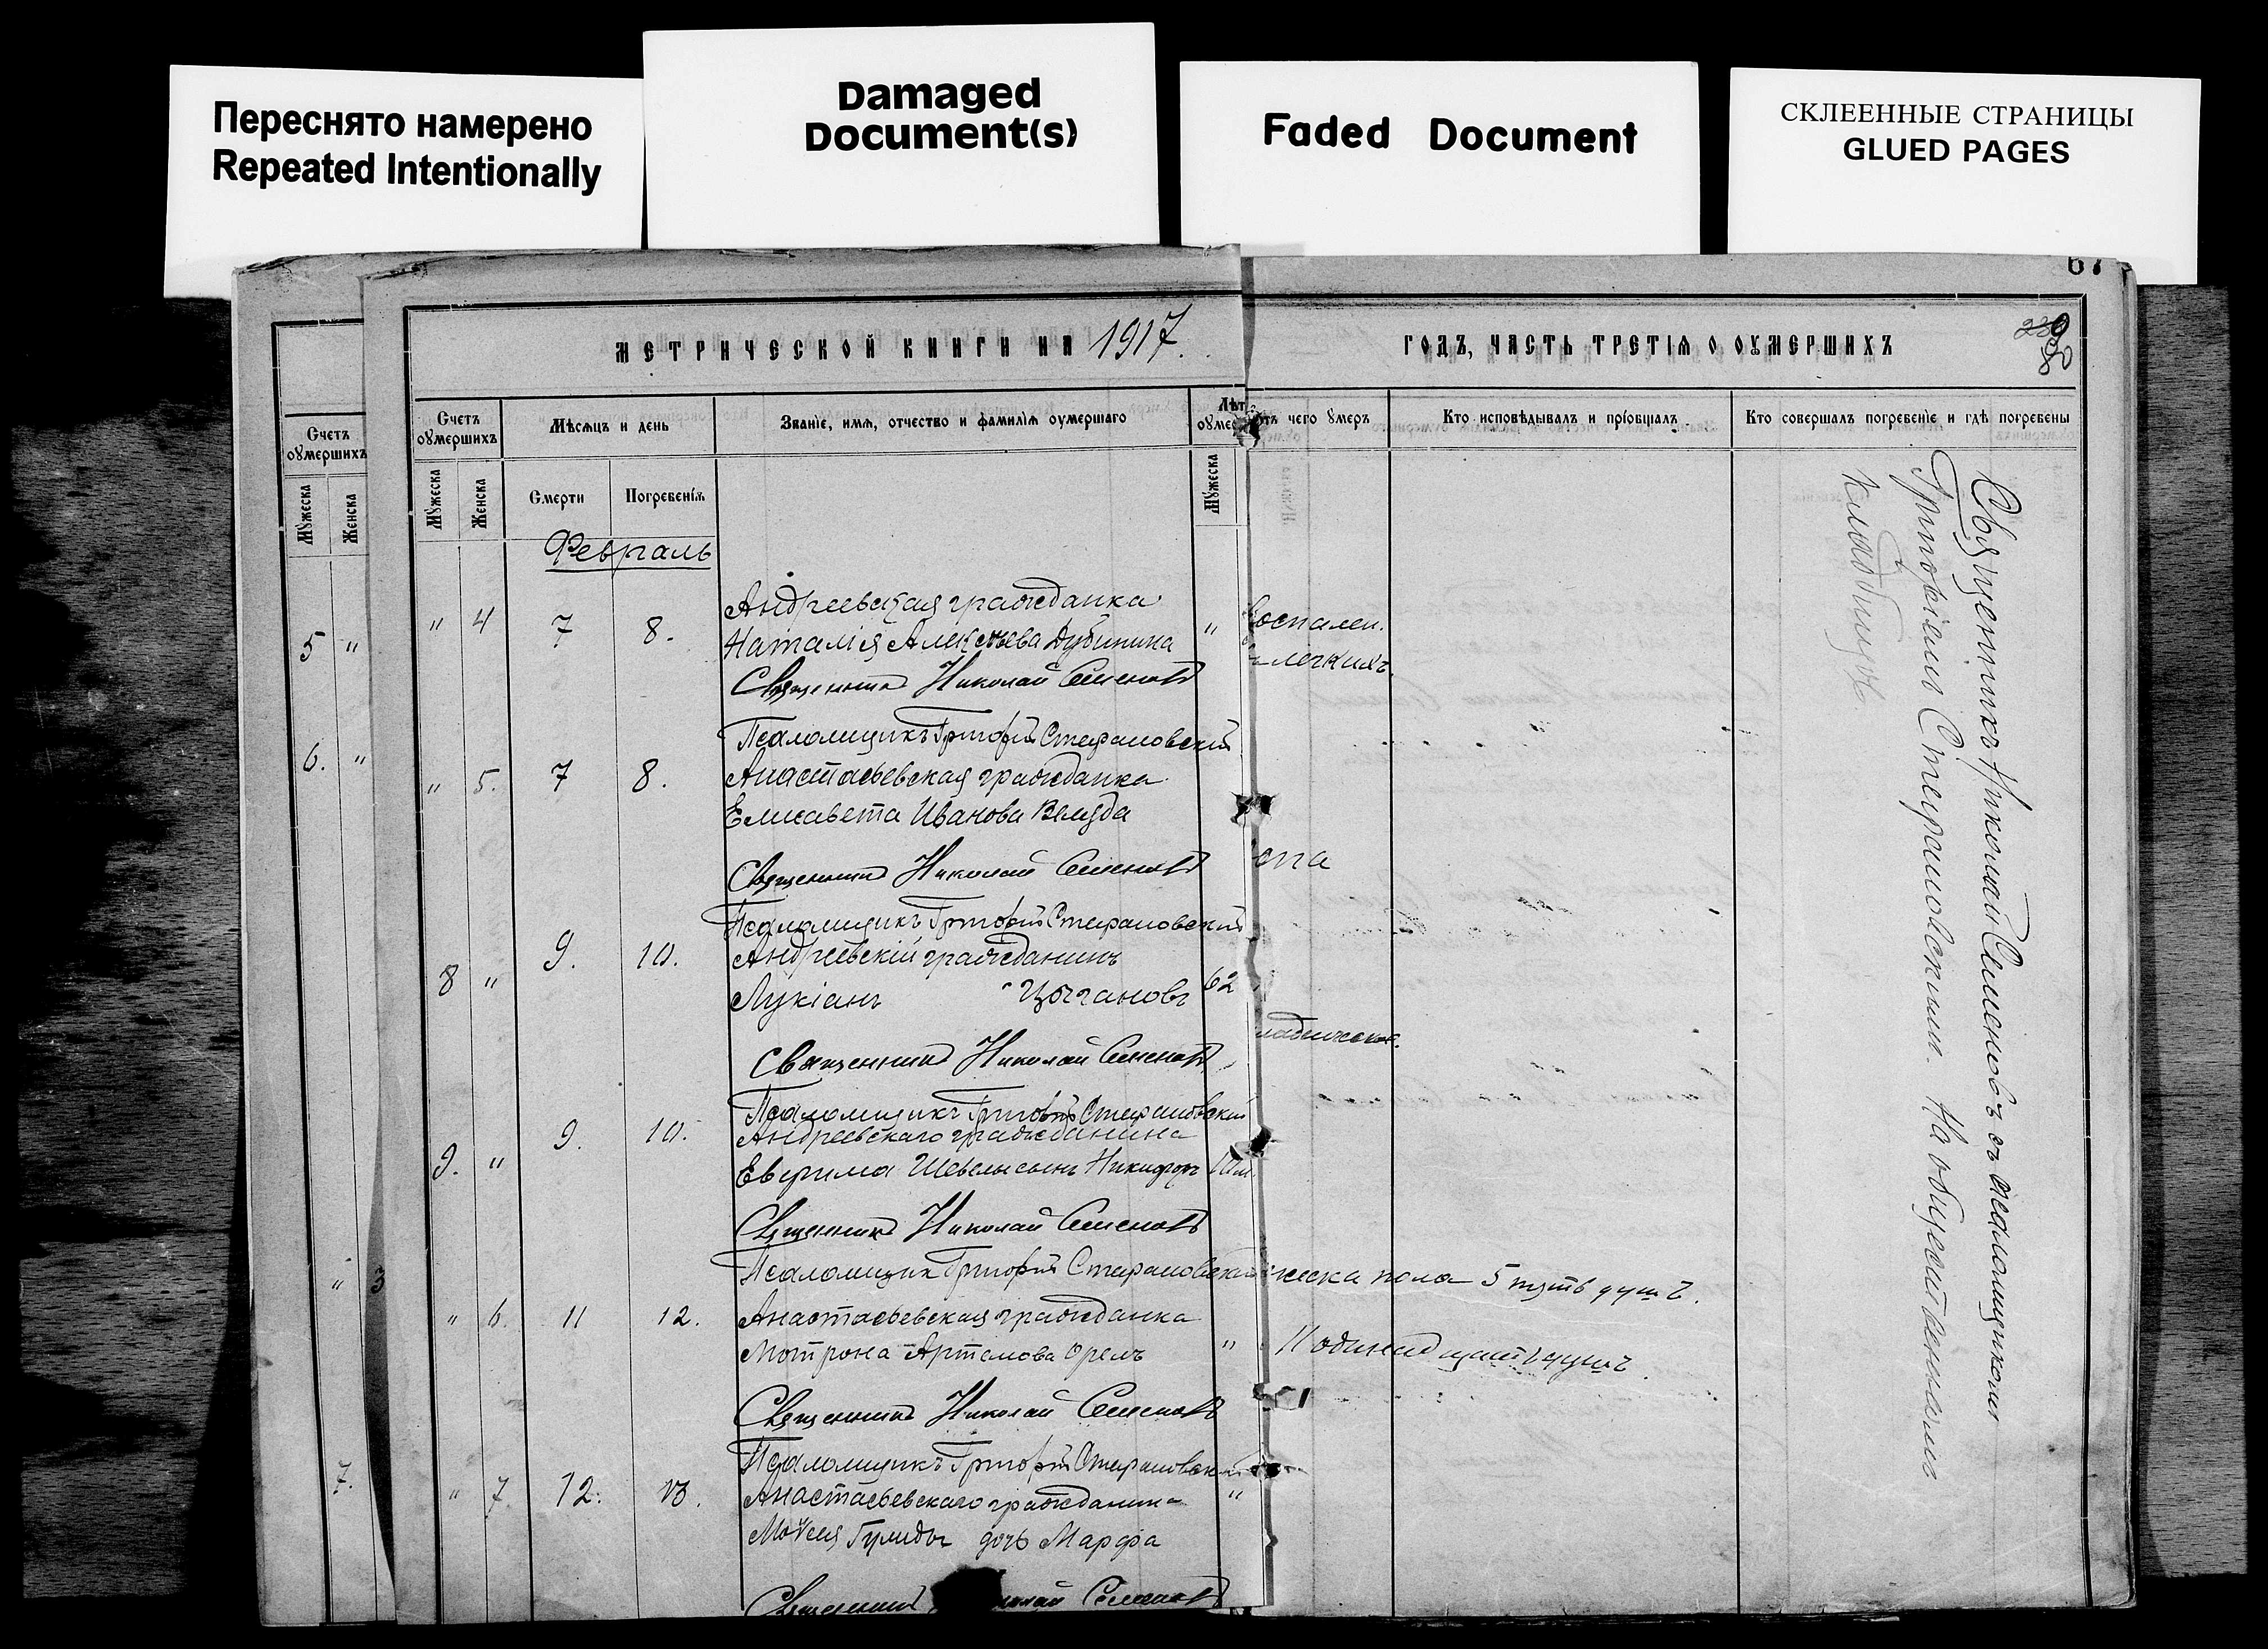 Переснято намерено
Repeated Intentionally
Damaged
Document(s)
Faded Document
СКЛЕЕННЫЕ СТРАНИЦЫ
GLUED PAGES
67
МЕТРИЧЕСКОЙ КНИГИ НА 1917.
ГОДЪ, ЧАСТЬ ТРЕТІЯ О ОУМЕРШИХЪ
Счетъ оумершихъ
Счетъ оумершихъ
Мѣсяцъ и день
Званіе, имя, отчество и фамилія оумершаго
Лѣт оумер
отъ чего оумеръ
Кто исповѣдывалъ и пріобщалъ
Кто совершалъ погребеніе и гдѣ погребены
Мужеска
Женска
Мужеска
Женска
Смерти
Погребенія
Мужеска
Февраль
5 "
6. "
" 3
7.
" 4 7 8. Андреевская гражданка
Наталія Алексѣева Дубинина "
Священникъ Николай Семеновъ
Псаломщикъ Григорій Стефановскій
" 5. 7 8. Анастасьевская гражданка
Елисавета Иванова
Священникъ Николай Семеновъ
Псаломщикъ Григорій Стефановскій
8 " 9. 10. Андреевскій гражданинъ
Лукіанъ Цыгановъ 62
Священникъ Николай Семеновъ
Псаломщикъ Григорій Стефановскій
9. " 9. 10. Андреевскаго гражданина
сынъ Никифоръ
Священникъ Николай Семеновъ
Псаломщик Григорій Стефановскій
" 6. 11 12. Анастасьевская гражданка
Мотрона Артемова Орелъ "
Священникъ Николай Семеновъ
Псаломщикъ Григорій Стефановскій
" 7 12. 13. Анастасьевскаго гражданина "
Моѵсея Гулиды дочь Марфа
Священникъ Николай Семеновъ
воспален.
легкихъ.
спа
ческа пола 5 пять душъ.
11 одинадцать душъ.
Священникъ Николай Семеновъ съ псаломщикомъ
Григоріемъ Стефановскимъ. На общественномъ
кладбищѣ